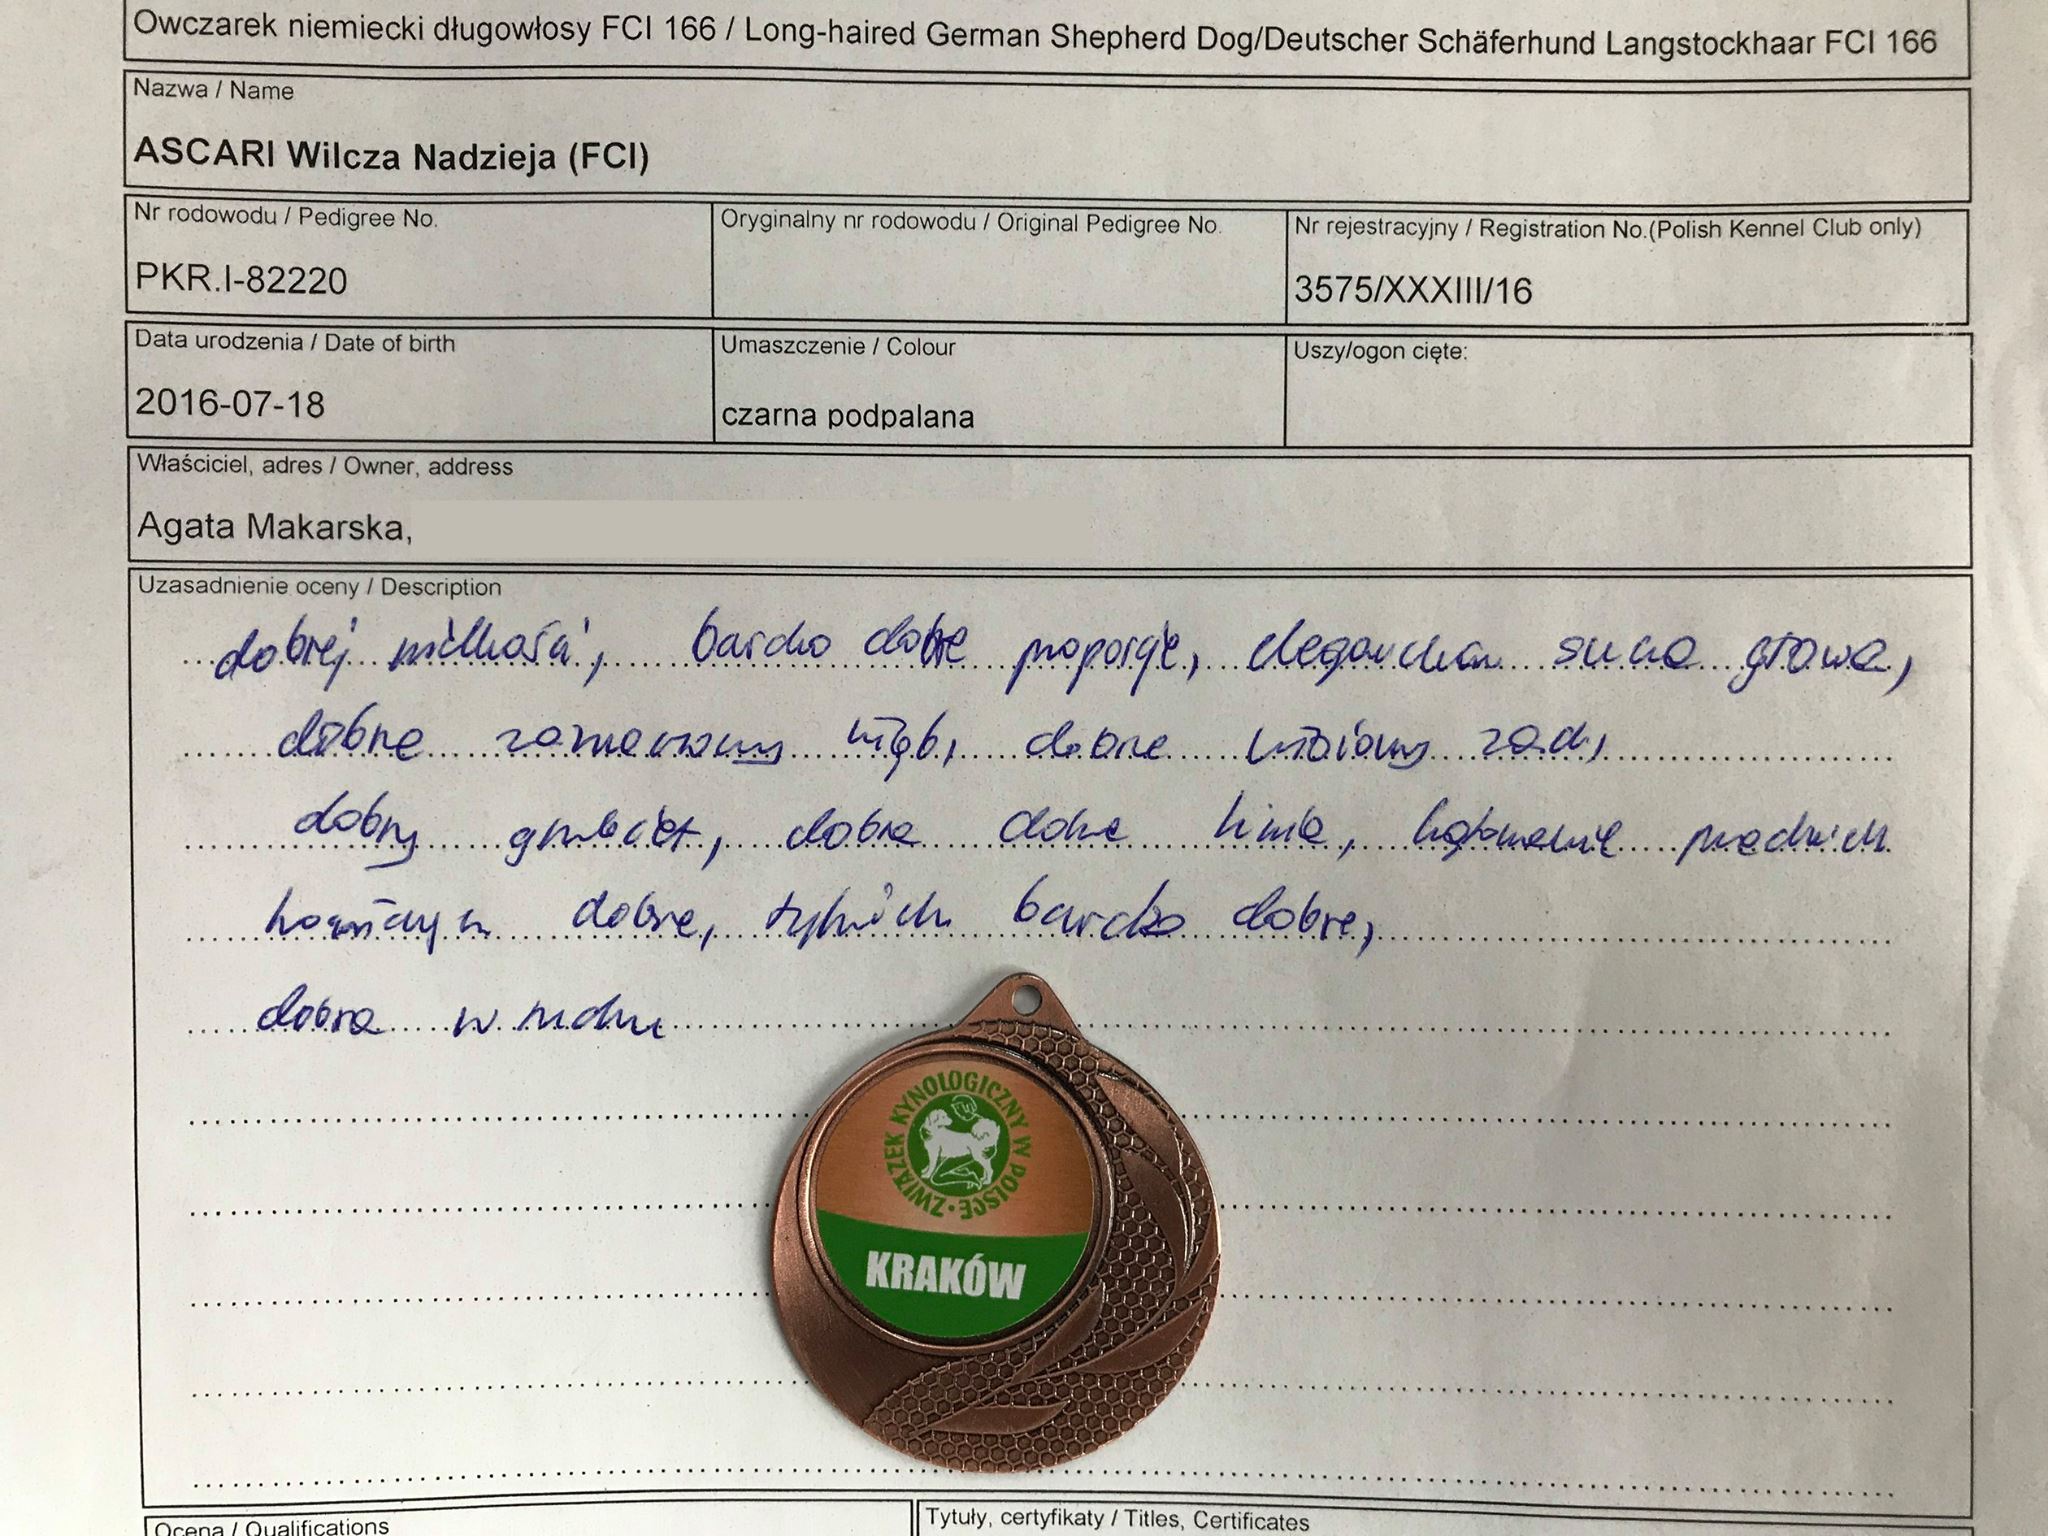 Owczarek niemiecki długowłosy FCI 166 / Long-haired German Shepherd Dog/Deutscher Schäferhund Langstockhaar FCI 166
Nazwa / Name
ASCARI Wilcza Nadzieja (FCI)
Nr rodowodu / Pedigree No.
PKR.I-82220
Oryginalny nr rodowodu / Original Pedigree No.
Nr rejestracyjny / Registration No.(Polish Kennel Club only)
3575/XXXIII/16
Data urodzenia / Date of birth
2016-07-18
Umaszczenie / Colour
czarna podpalana
Uszy/ogon cięte:
Właściciel, adres / Owner, address
Agata Makarska,
Uzasadnienie oceny / Description
dobrej wielkości, bardzo dobre proporcje, elegancka sucza głowa,
dobrze zaznaczony kłąb, dobrze kątowany zad,
dobry grzbiet, dobra dolna linia, kątowanie przednich
kończyn dobre, tylnich bardzo dobre,
dobra w ruchu
ZWIĄZEK KYNOLOGICZNY W POLSCE
KRAKÓW
Ocena / Qualifications
Tytuły, certyfikaty / Titles, Certificates